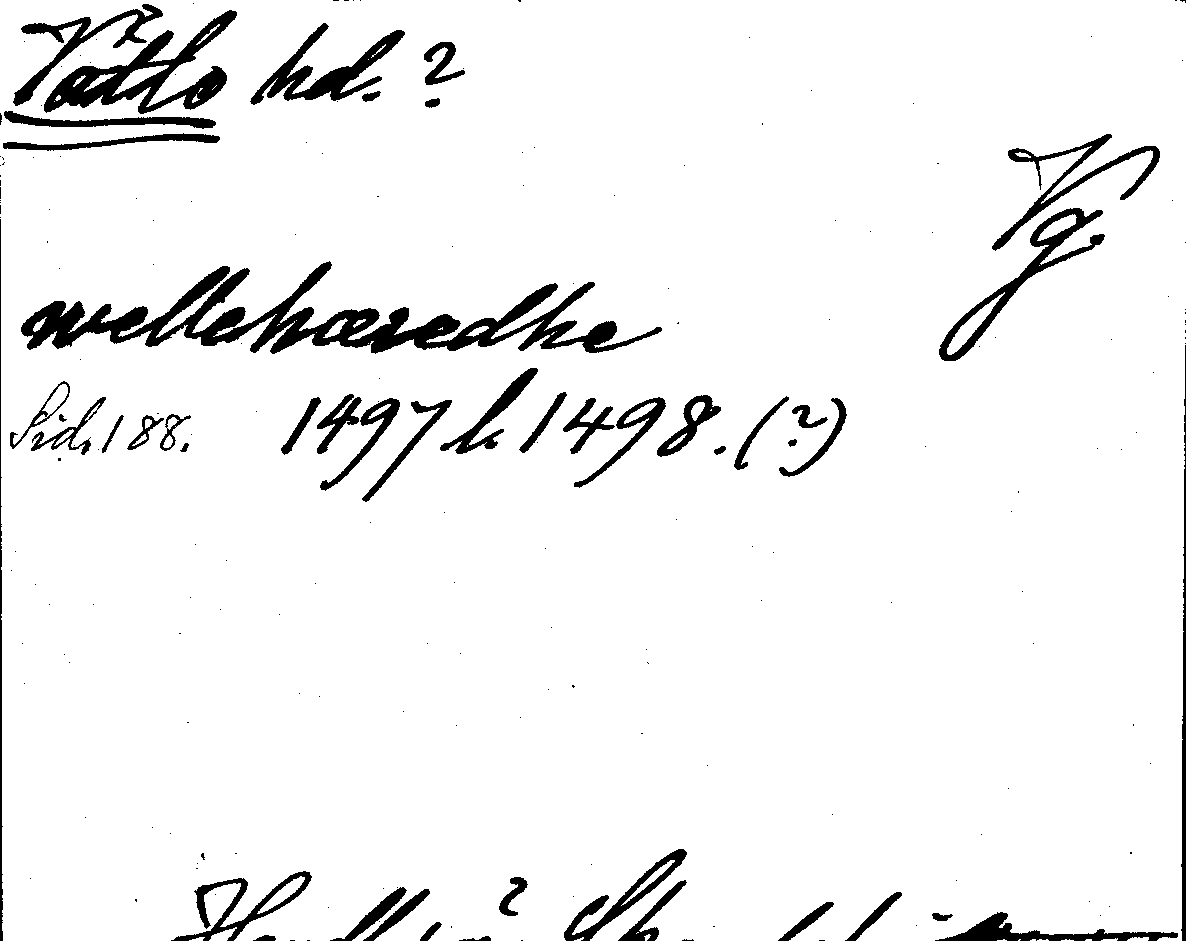 Vättlo hd. ?
Vg.
wellehæredhe
Sid. 188. 1497 l. 1498. (?)